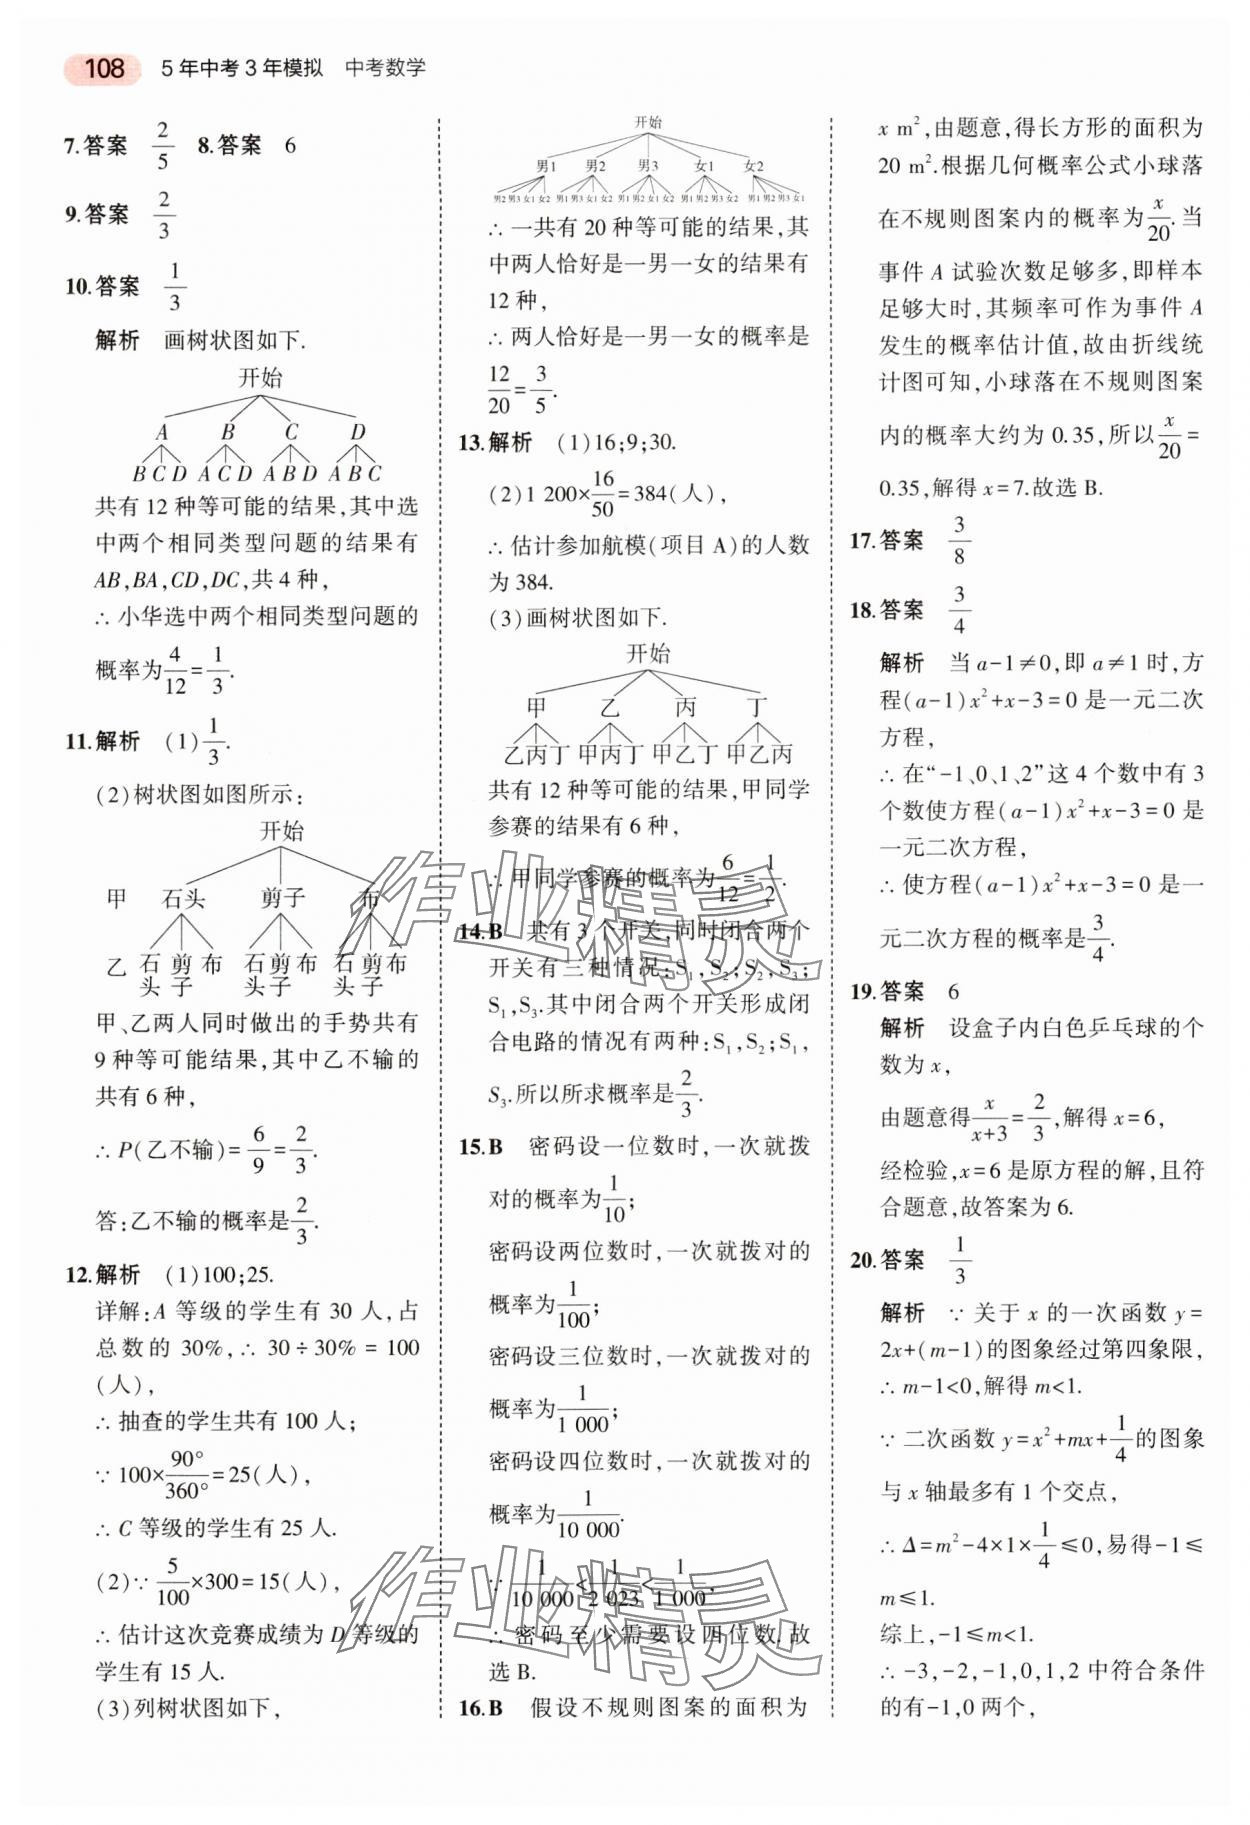 108 5年中考3年模拟 中考数学
7.答案 2/5 8.答案 6
9.答案 2/3
10.答案 1/3
解析 画树状图如下.
开始
A B C D
B C D A C D A B D A B C
共有12种等可能的结果,其中选
中两个相同类型问题的结果有
AB,BA,CD,DC,共4种,
∴小华选中两个相同类型问题的
概率为4/12=1/3.
11.解析 (1)1/3.
(2)树状图如图所示:
开始
甲 石头 剪子 布
乙 石头 剪子 布 石头 剪子 布 石头 剪子 布
甲、乙两人同时做出的手势共有
9种等可能结果,其中乙不输的
共有6种,
∴P(乙不输)=6/9=2/3.
答:乙不输的概率是2/3.
12.解析 (1)100;25.
详解:A等级的学生有30人,占
总数的30%,∴30÷30%=100
(人),
∴抽查的学生共有100人;
∵100×90°/360°=25(人),
∴C等级的学生有25人.
(2)∵5/100×300=15(人),
∴估计这次竞赛成绩为D等级的
学生有15人.
(3)列树状图如下,
开始
男1 男2 男3 女1 女2
男2 男3 女1 女2 男1 男3 女1 女2 男1 男2 女1 女2 男1 男2 男3 女2 男1 男2 男3 女1
∴一共有20种等可能的结果,其
中两人恰好是一男一女的结果有
12种,
∴两人恰好是一男一女的概率是
12/20=3/5.
13.解析 (1)16;9;30.
(2)1 200×16/50=384(人),
∴估计参加航模(项目A)的人数
为384.
(3)画树状图如下.
开始
甲 乙 丙 丁
乙丙丁 甲丙丁 甲乙丁 甲乙丙
共有12种等可能的结果,甲同学
参赛的结果有6种,
∴甲同学参赛的概率为6/12=1/2.
14.B 共有3个开关,同时闭合两个
开关有三种情况:S₁,S₂;S₂,S₃;
S₁,S₃.其中闭合两个开关形成闭
合电路的情况有两种:S₁,S₂;S₁,
S₃.所以所求概率是2/3.
15.B 密码设一位数时,一次就拨
对的概率为1/10;
密码设两位数时,一次就拨对的
概率为1/100;
密码设三位数时,一次就拨对的
概率为1/1 000;
密码设四位数时,一次就拨对的
概率为1/10 000.
∵1/10 000<1/2 023<1/1 000,
∴密码至少需要设四位数.故
选B.
16.B 假设不规则图案的面积为
x m²,由题意,得长方形的面积为
20 m².根据几何概率公式小球落
在不规则图案内的概率为x/20.当
事件A试验次数足够多,即样本
足够大时,其频率可作为事件A
发生的概率估计值,故由折线统
计图可知,小球落在不规则图案
内的概率大约为0.35,所以x/20=
0.35,解得x=7.故选B.
17.答案 3/8
18.答案 3/4
解析 当a-1≠0,即a≠1时,方
程(a-1)x²+x-3=0是一元二次
方程,
∴在“-1、0、1、2”这4个数中有3
个数使方程(a-1)x²+x-3=0是
一元二次方程,
∴使方程(a-1)x²+x-3=0是一
元二次方程的概率是3/4.
19.答案 6
解析 设盒子内白色乒乓球的个
数为x,
由题意得x/(x+3)=2/3,解得x=6,
经检验,x=6是原方程的解,且符
合题意,故答案为6.
20.答案 1/3
解析 ∵关于x的一次函数y=
2x+(m-1)的图象经过第四象限,
∴m-1<0,解得m<1.
∵二次函数y=x²+mx+1/4的图象
与x轴最多有1个交点,
∴Δ=m²-4×1×1/4≤0,易得-1≤
m≤1.
综上,-1≤m<1.
∴-3,-2,-1,0,1,2中符合条件
的有-1,0两个,
作业精灵
作业精灵